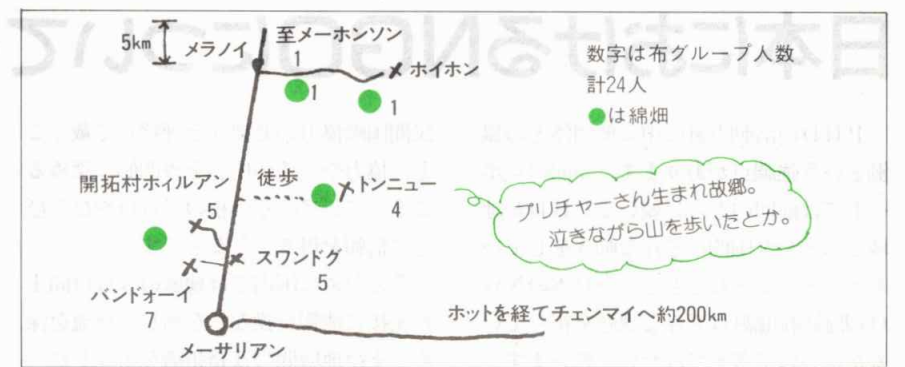 日本におけるNGOについて
5km
メラノイ
至メーホンソン
1
ホイホン
1
1
数字は布グループ人数
計24人
●は綿畑
開拓村ホィルアン
徒歩
トンニュー
4
プリチャーさん生まれ故郷。
泣きながら山を歩いたとか。
スワンドグ
5
バンドォーイ
7
ホットを経てチェンマイへ約200km
メーサリアン